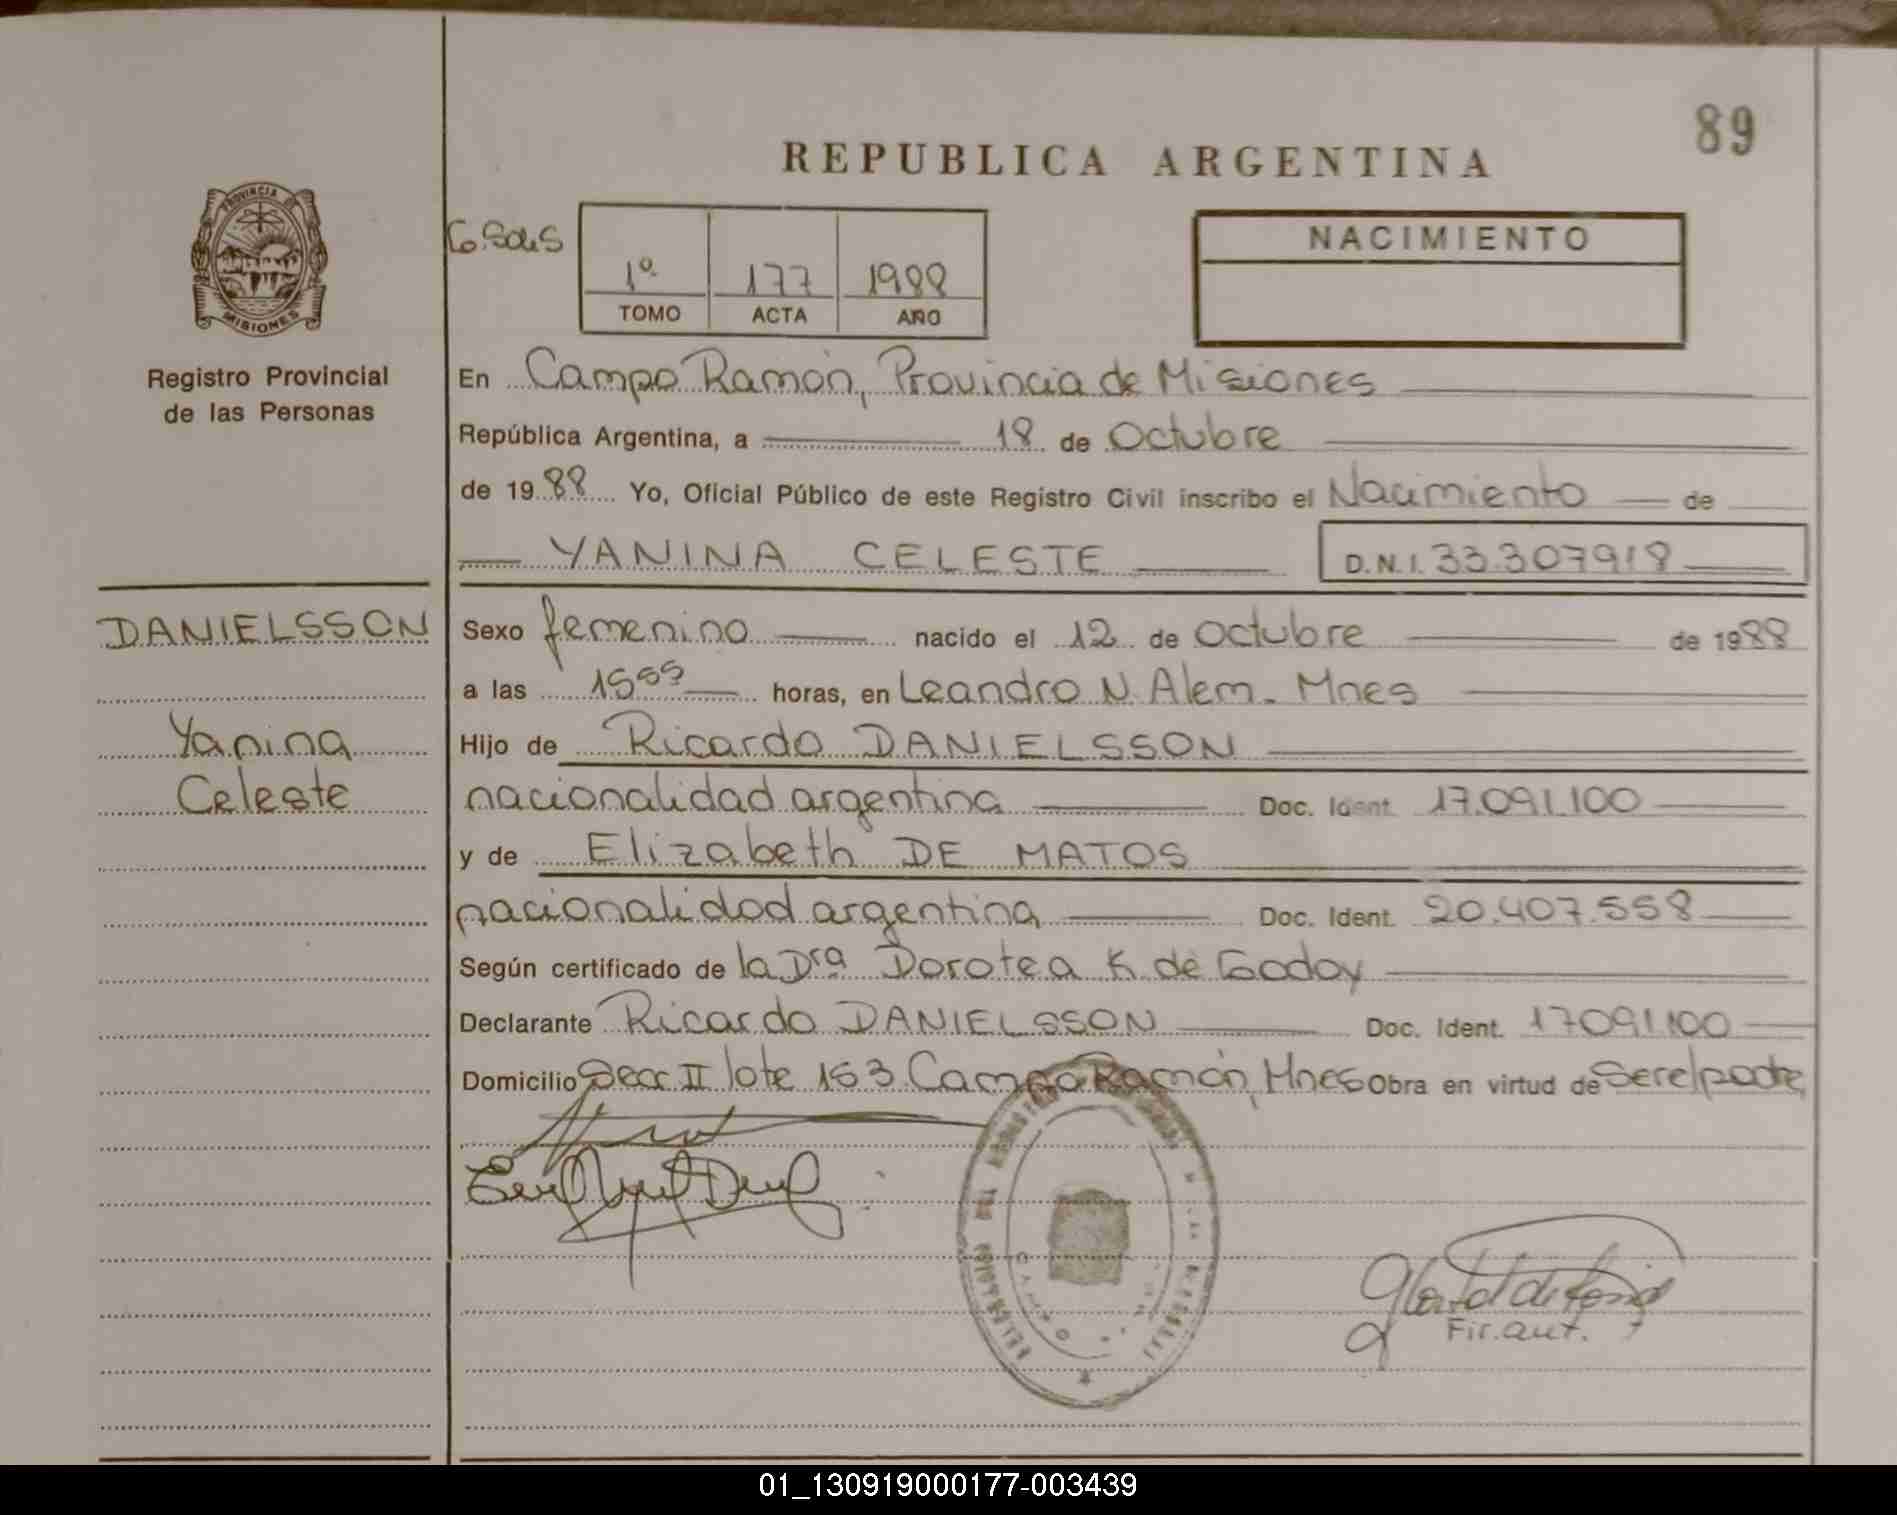 89
REPUBLICA ARGENTINA
PROVINCIA DE
MISIONES
Registro Provincial
de las Personas
1º 177 1988
TOMO ACTA AÑO
NACIMIENTO
En Campo Ramón, Provincia de Misiones
República Argentina, a 18 de Octubre
de 1988 Yo, Oficial Público de este Registro Civil inscribo el Nacimiento de
YANINA CELESTE D.N.I. 33.307918
DANIELSSON
Yanina
Celeste
Sexo femenino nacido el 12 de Octubre de 1988
a las horas, en Leandro N. Alem. Mnes
Hijo de Ricardo DANIELSSON
nacionalidad argentina Doc. Ident. 17.091.100
y de Elizabeth DE MATOS
nacionalidad argentina Doc. Ident. 20.407.558
Según certificado de la Dra Dorotea K de Godoy
Declarante Ricardo DANIELSSON Doc. Ident. 17091100
Domicilio Secc II lote 153 Campo Ramón, Mnes Obra en virtud de Ser el padre
Fir. aut.
01_130919000177-003439